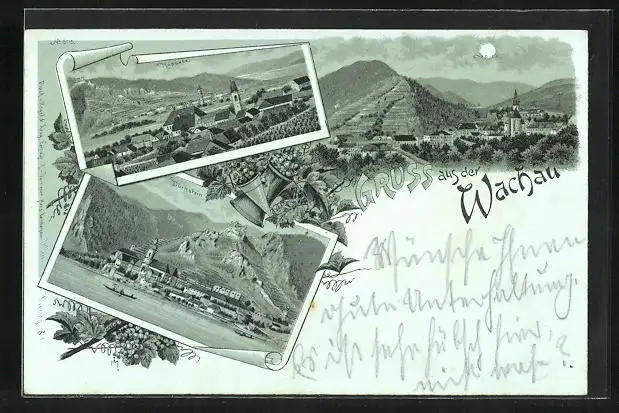 Dürnstein
GRUSS aus der
Wachau
Wünsche Ihnen
gute Unterhaltung.
Es ist sehr hübsch hier,
nicht wahr?